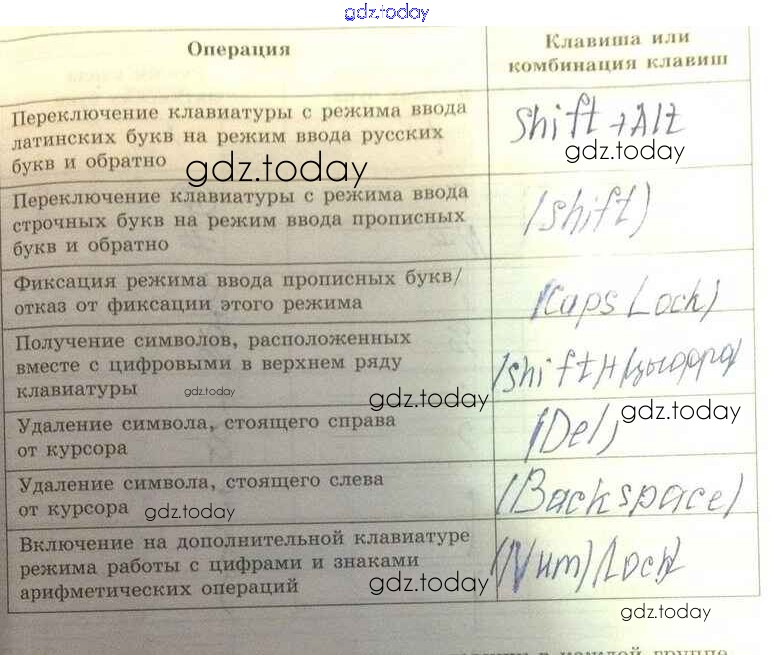 gdz.today
Операция
Клавиша или
комбинация клавиш
Переключение клавиатуры с режима ввода
латинских букв на режим ввода русских
букв и обратно
Shift+Alt
gdz.today
gdz.today
Переключение клавиатуры с режима ввода
строчных букв на режим ввода прописных
букв и обратно
(Shift)
Фиксация режима ввода прописных букв/
отказ от фиксации этого режима
(Caps Lock)
Получение символов, расположенных
вместе с цифровыми в верхнем ряду
клавиатуры
(shift)+(цыфра)
gdz.today
gdz.today
Удаление символа, стоящего справа
от курсора
(Del)
gdz.today
Удаление символа, стоящего слева
от курсора
(Backspace)
gdz.today
Включение на дополнительной клавиатуре
режима работы с цифрами и знаками
арифметических операций
(Num)(Lock)
gdz.today
gdz.today
в каждой группе